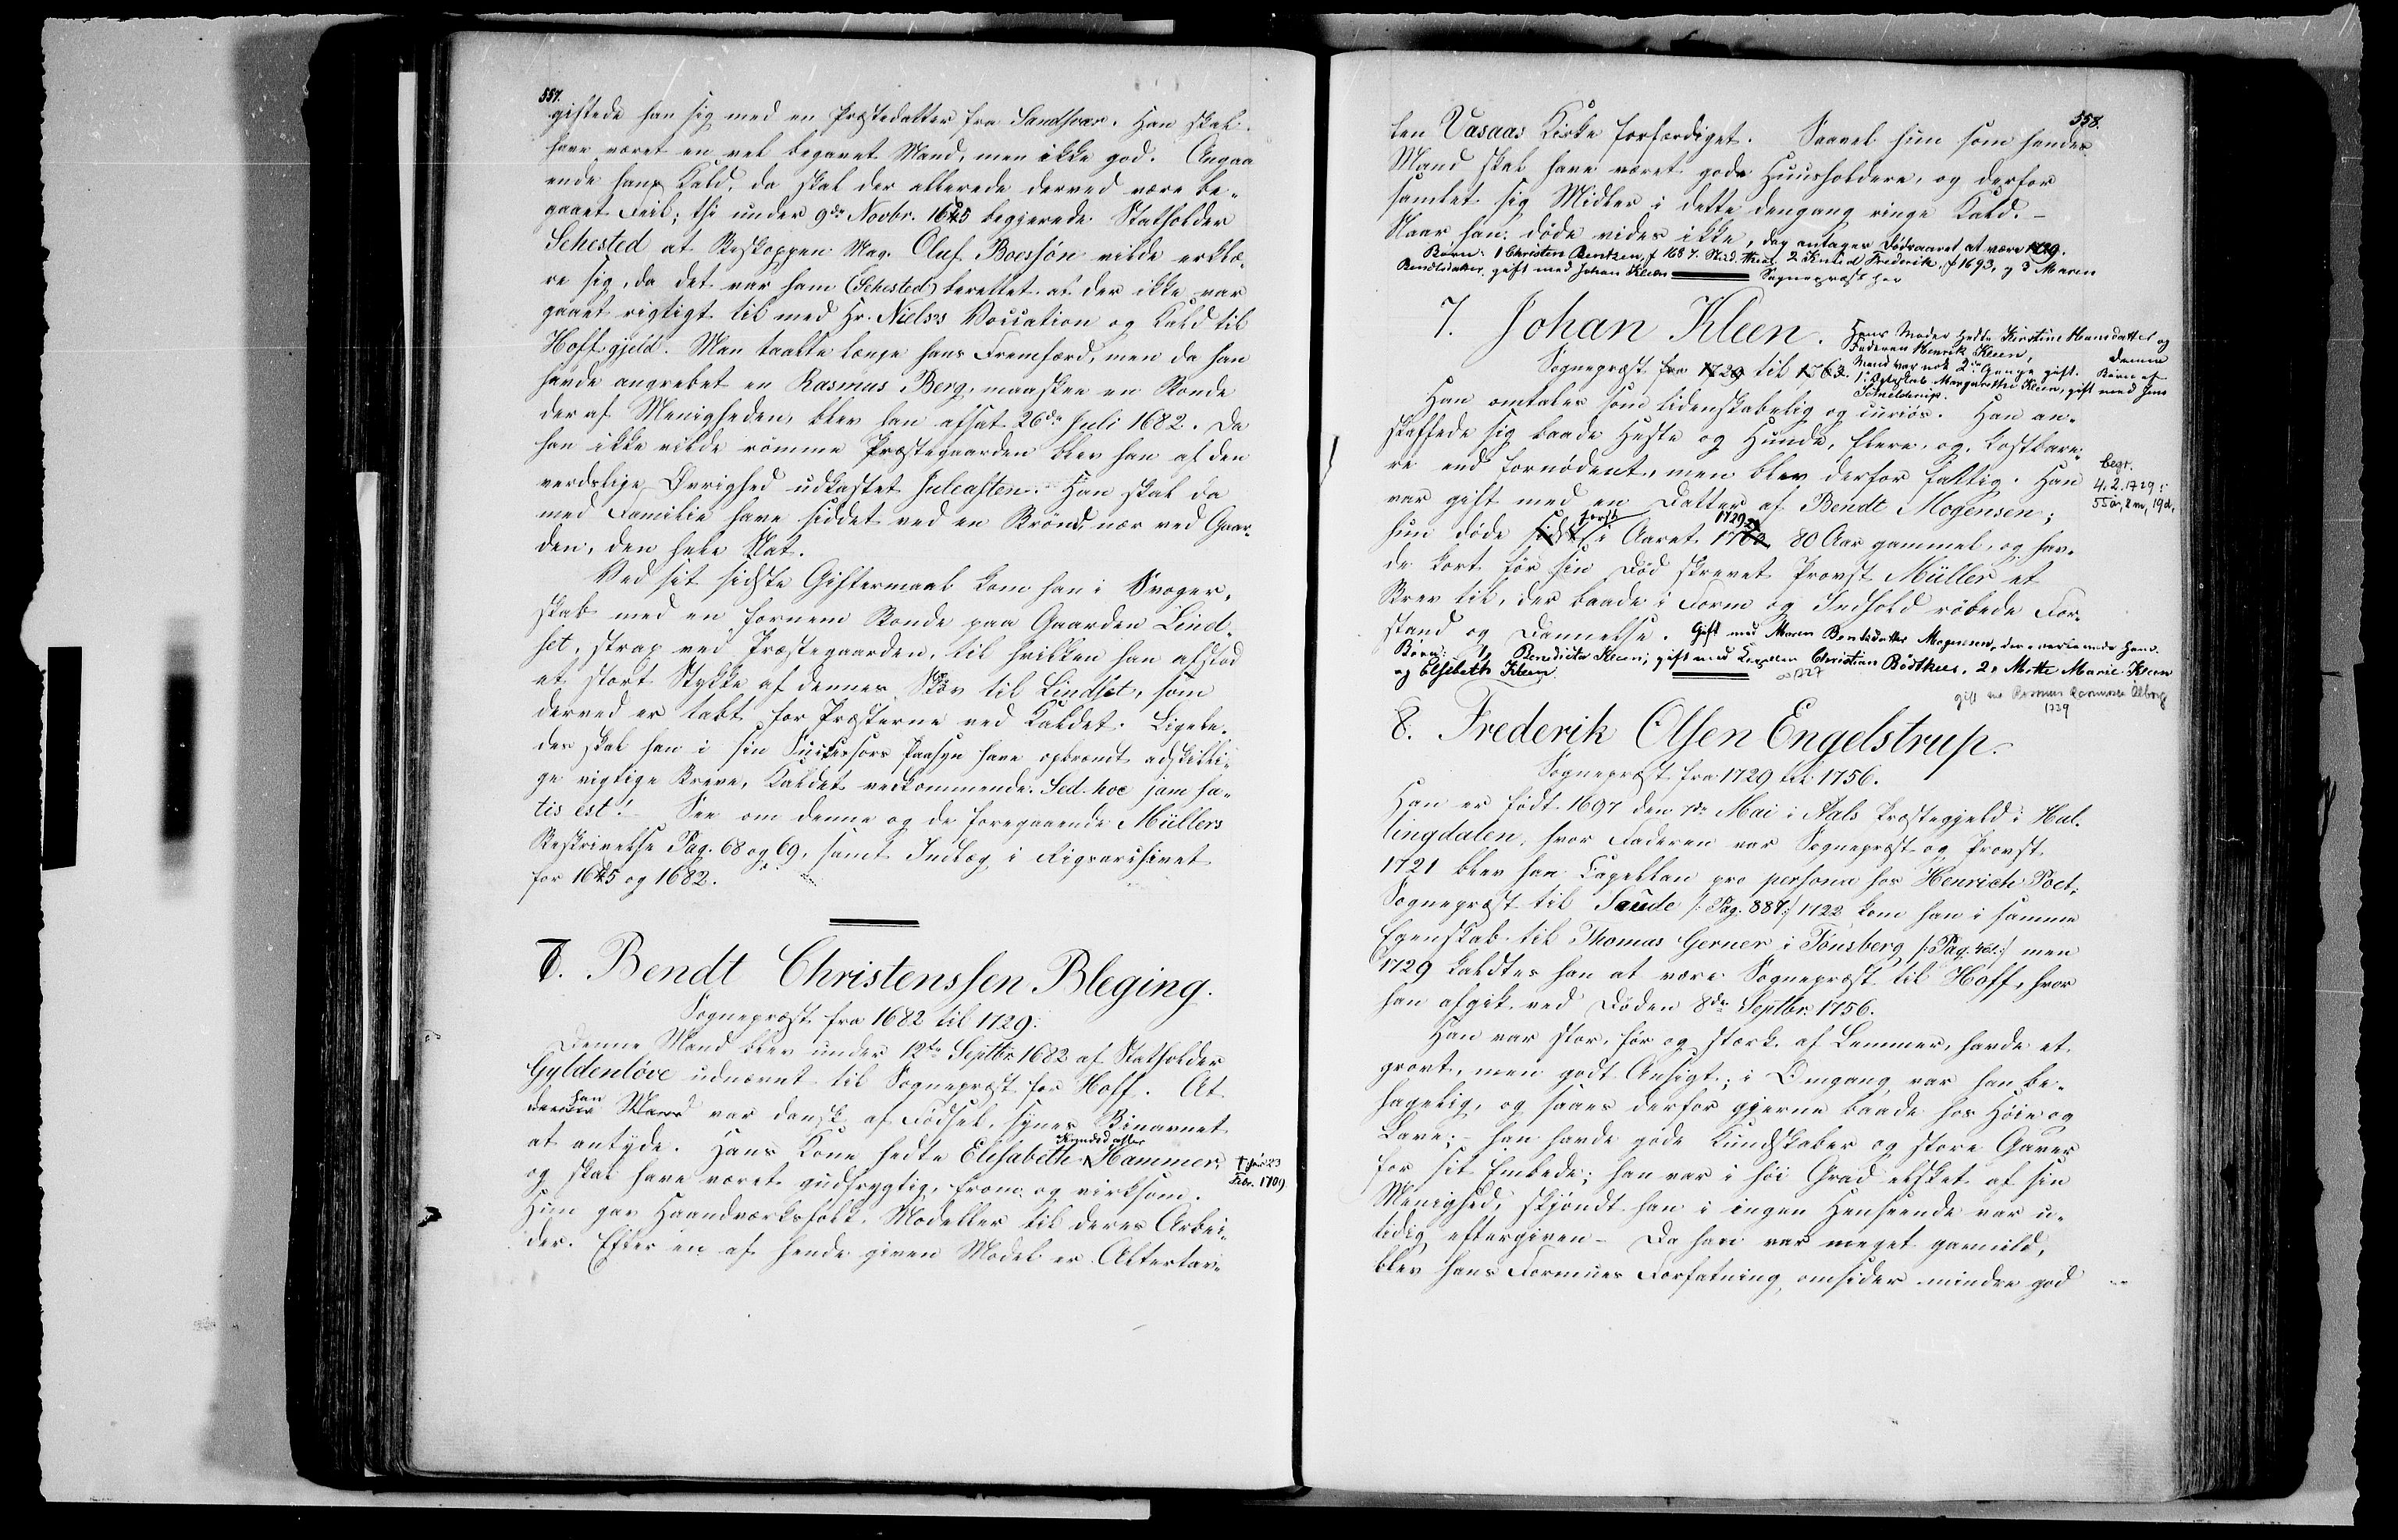 557.
giftede han sig med en Præstedatter fra Sandsvær. Han skal
have været en vel begavet Mand, men ikke god. Angaa
ende hans Kald, da skal der allerede derved være be-
gaaet Feil; thi under 9de Novbr. 1645 begjerede Statholder
Sehested at Biskoppen Mag. Oluf Boessøn vilde erklæ-
re sig, da det var ham (Sehested) berettet at der ikke var
gaaet rigtigt til med Hr. Nielses Vocation og Kald til
Hoffs gjeld. Man taalte længe hans Fremfærd, men da han
havde angrebet en Rasmus Berg, maaskee en Bonde
der af Menigheden, blev han afsat 26de Juli 1682. Da
han ikke vilde rømme Præstegaarden blev han af den
verdslige Øvrighed udkastet Juleaften. Han skal da
med Familie have siddet ved en Brønd nær ved Gaar-
den, den hele Nat.
Ved sit sidste Giftermaal kom han i Svoger-
skab med en fornem Bonde paa Gaarden Lind-
set, strax ved Præstegaarden, til hvilken han afstod
et stort Stykke af dennes Skov til Lindset, som
derved er tabt for Præsterne ved Kaldet. Ligele-
des skal han i sin Successors Paasyn have opbrændt adskilli-
ge vigtige Breve, Kaldet vedkommende. Sed hoc jam sa-
tis est! See om denne og de foregaaende Müllers
Beskrivelse Pag. 68 og 69, samt Indlæg i Rigsarchivet
for 1645 og 1682.
7. Bendt Christenssen Bleging.
Sognepræst fra 1682 til 1729.
Denne Mand blev under 12te Septbr 1682 af Statholder
Gyldenløve udnævnt til Sognepræst for Hoff. At
han
denne Mand var dansk af Fødsel, synes Binavnet
at antyde. Hans Kone hedte Elisabeth Knudsdatter Hammer,
† før 23
Febr. 1709
og skal have været gudfrygtig, from og virksom.
Hun gav Haandværksfolk Modeller til deres Arbei-
der. Efter en af hende given Model er Altertav-
558.
len Vasaas Kirke forfærdiget. Saavel hun som hendes
Mand skal have været gode Huusholdere, og derfor
samlet sig Midler i dette dengang ringe Kald. -
Naar han døde vides ikke, dog antages Dødsaaret at være 1729.
Børn: 1 Christen Bentzen, f 1687. Stud. theol, 2 Knud Frederik, f 1693, og 3 Maren
Bendtsdatter, gift med Johan Kleen Sognepræst her
7. Johan Kleen.
Hans Moder hedte Kirstine Hansdatter og
Faderen Henrik Kleen,
Denne
Mand var nok 2de Gange gift. Børn af
1ste Ægteskab Margarethe Kleen, gift med Jens
Schielderup.
Sognepræst fra 1729 til 1762.
Han omtales som lidenskabelig og curiøs. Han an-
skaffede sig baade Heste og Hunde, flere og kostbare-
re end fornødent, men blev derfor fattig. Han
begr.
4. 2. 1729:
55 år, 2 m, 19 d.
var gift med en Datter af Bendt Mogensen;
hun døde først i Aaret 1729 80 Aar gammel, og hav-
de kort før sin Død skrevet Provst Müller et
Brev til, der baade i Form og Indhold røbede For-
stand og Dannelse. Gift med Maren Bentsdatter Mogensen, der overlevede ham.
Børn: 1, Benedicta Kleen, gift med Capellan Christian Bødtker, 2. Mette Marie Kleen
og Elsebeth Kleen
∞ 1727
gift m Rasmus Rasmussen Ålborg
1739
8. Frederik Olsen Engelstrup.
Sognepræst fra 1729 til 1756.
Han er født 1697 den 7de Mai i Aals Præstegjeld i Hal-
lingdalen, hvor Faderen var Sognepræst og Provst
1721 blev han Capellan pro persona hos Henrich Poct,
Sognepræst til Saude /: Pag. 887:/ 1722 kom han i samme
Egenskab til Thomas Gerner i Tønsberg /: Pag. 461:/ men
1729 kaldtes han at være Sognepræst til Hoff, hvor
han afgik ved Døden 8de Septbr 1756.
Han var stor, før og stærk af Lemmer, havde et
grovt, men godt Ansigt; i Omgang var han be-
hagelig, og saaes derfor gjerne baade hos Høie og
Lave; - han havde gode Kundskaber og store Gaver
for sit Embede; han var i høi Grad elsket af sin
Menighed, skjøndt han i ingen Henseende var u-
tidig eftergiven - Da han var meget gavmild,
blev hans Formues Forfatning omsider mindre god